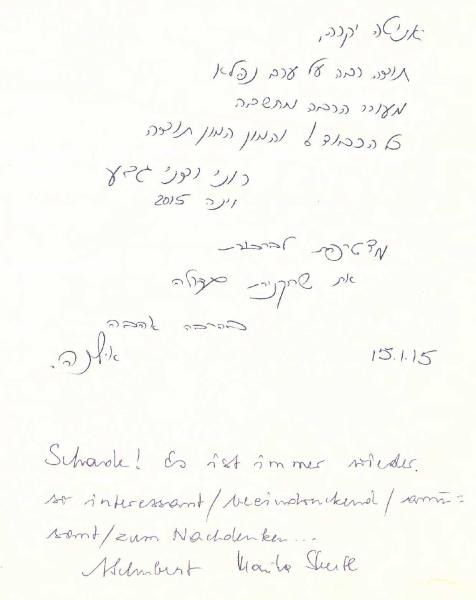 אניטה יקרה,
תודה רבה על ערב נפלא
מעורר הרבה מחשבה
כל הכבוד ! והמון המון תודה
רוני ודני גבע
וינה 2015
מצטרפת לברכות
את שחקנית גדולה
בהרבה אהבה
אילנה.
15.1.15
Schade! Es ist immer wieder
so interessant/beeindruckend/amü-
sant/zum Nachdenken...
Marika